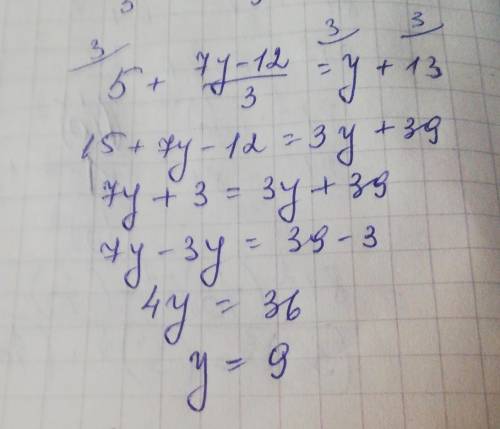 3/ 5 + (7y-12)/3 = 3/ y + 3/ 13
15 + 7y - 12 = 3y + 39
7y + 3 = 3y + 39
7y - 3y = 39 - 3
4y = 36
y = 9